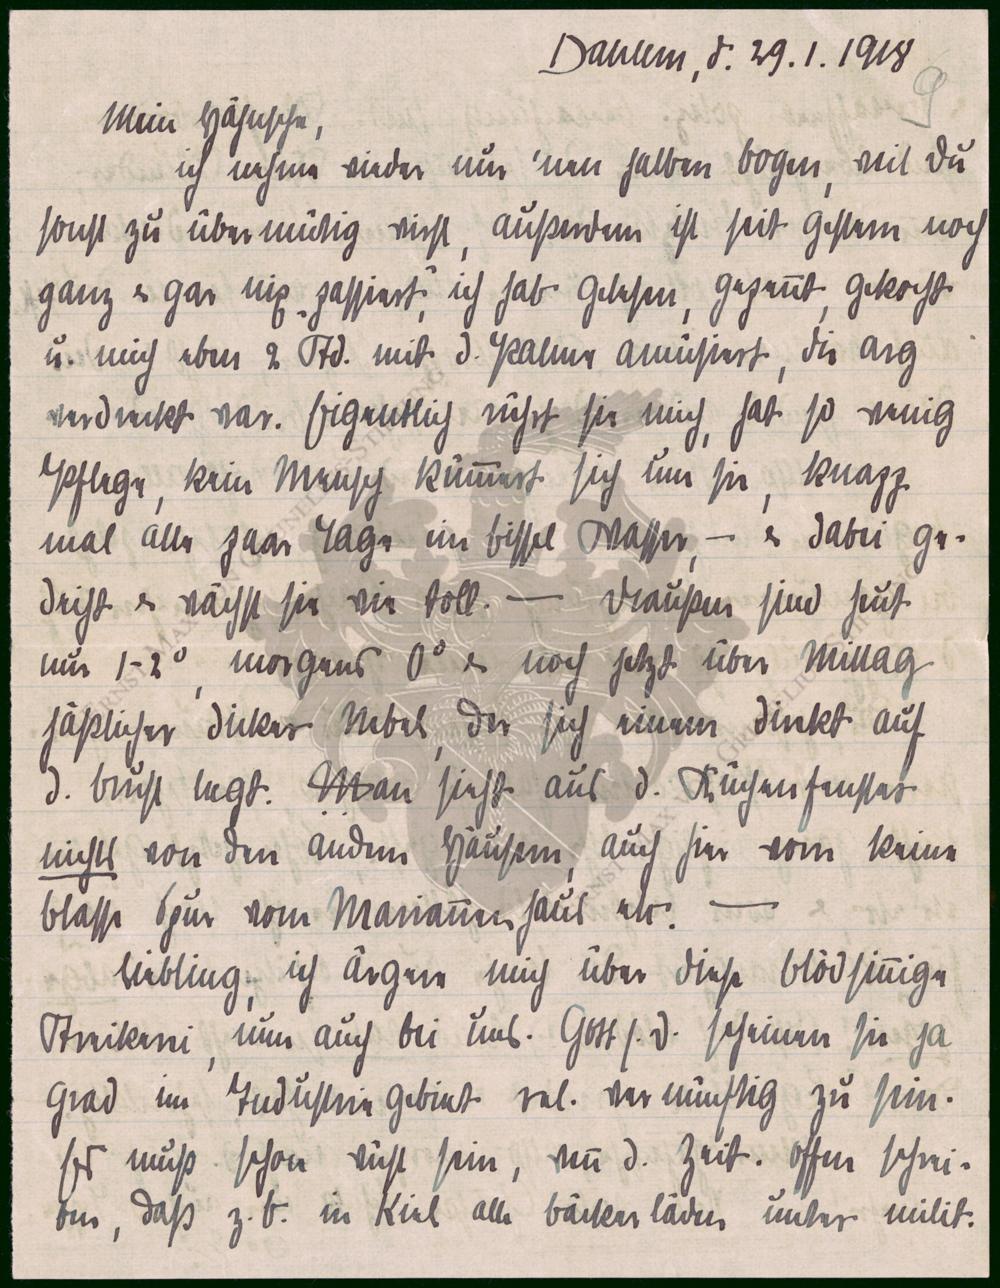 Dahlem, d. 29.1.1918
9
Mein Hähnsche,
ich nehme wieder nur 'nen halben bogen, weil du
sonst zu übermütig wirst, außerdem ist seit gestern noch
ganz & gar nix „passiert", ich hab gelesen, gepennt, gekocht
u. mich eben 2 Std. mit d. Palme amüsiert, die arg
verdreckt war. Eigentlich rührt sie mich, hat so wenig
Pflege, kein Mensch kümert sich um sie, knapp
mal alle paar Tage im bissel Wasser, — & dabei ge-
deiht & wächst sie wie toll. — draußen sind heut
nur 1-2°, morgens 0° & noch jetzt über Mittag
häßlicher dicker Nebel, der sich einem direkt auf
d. brust legt. Man sieht aus d. Küchenfenster
nichts von den andern Häusern, auch hier vorn keine
blasse Spur vom Marianenhaus etc. —
liebling, ich ärgere mich über diese blödsinige
Streikerei, nun auch bei uns. Gott s. d. scheinen sie ja
grad im Industriegebiet rel. vernünftig zu sein.
Es muß schon wüst sein, wen d. Zeit. offen schrei-
ben, daß z.b. in Kiel alle bäckerläden unter milit.